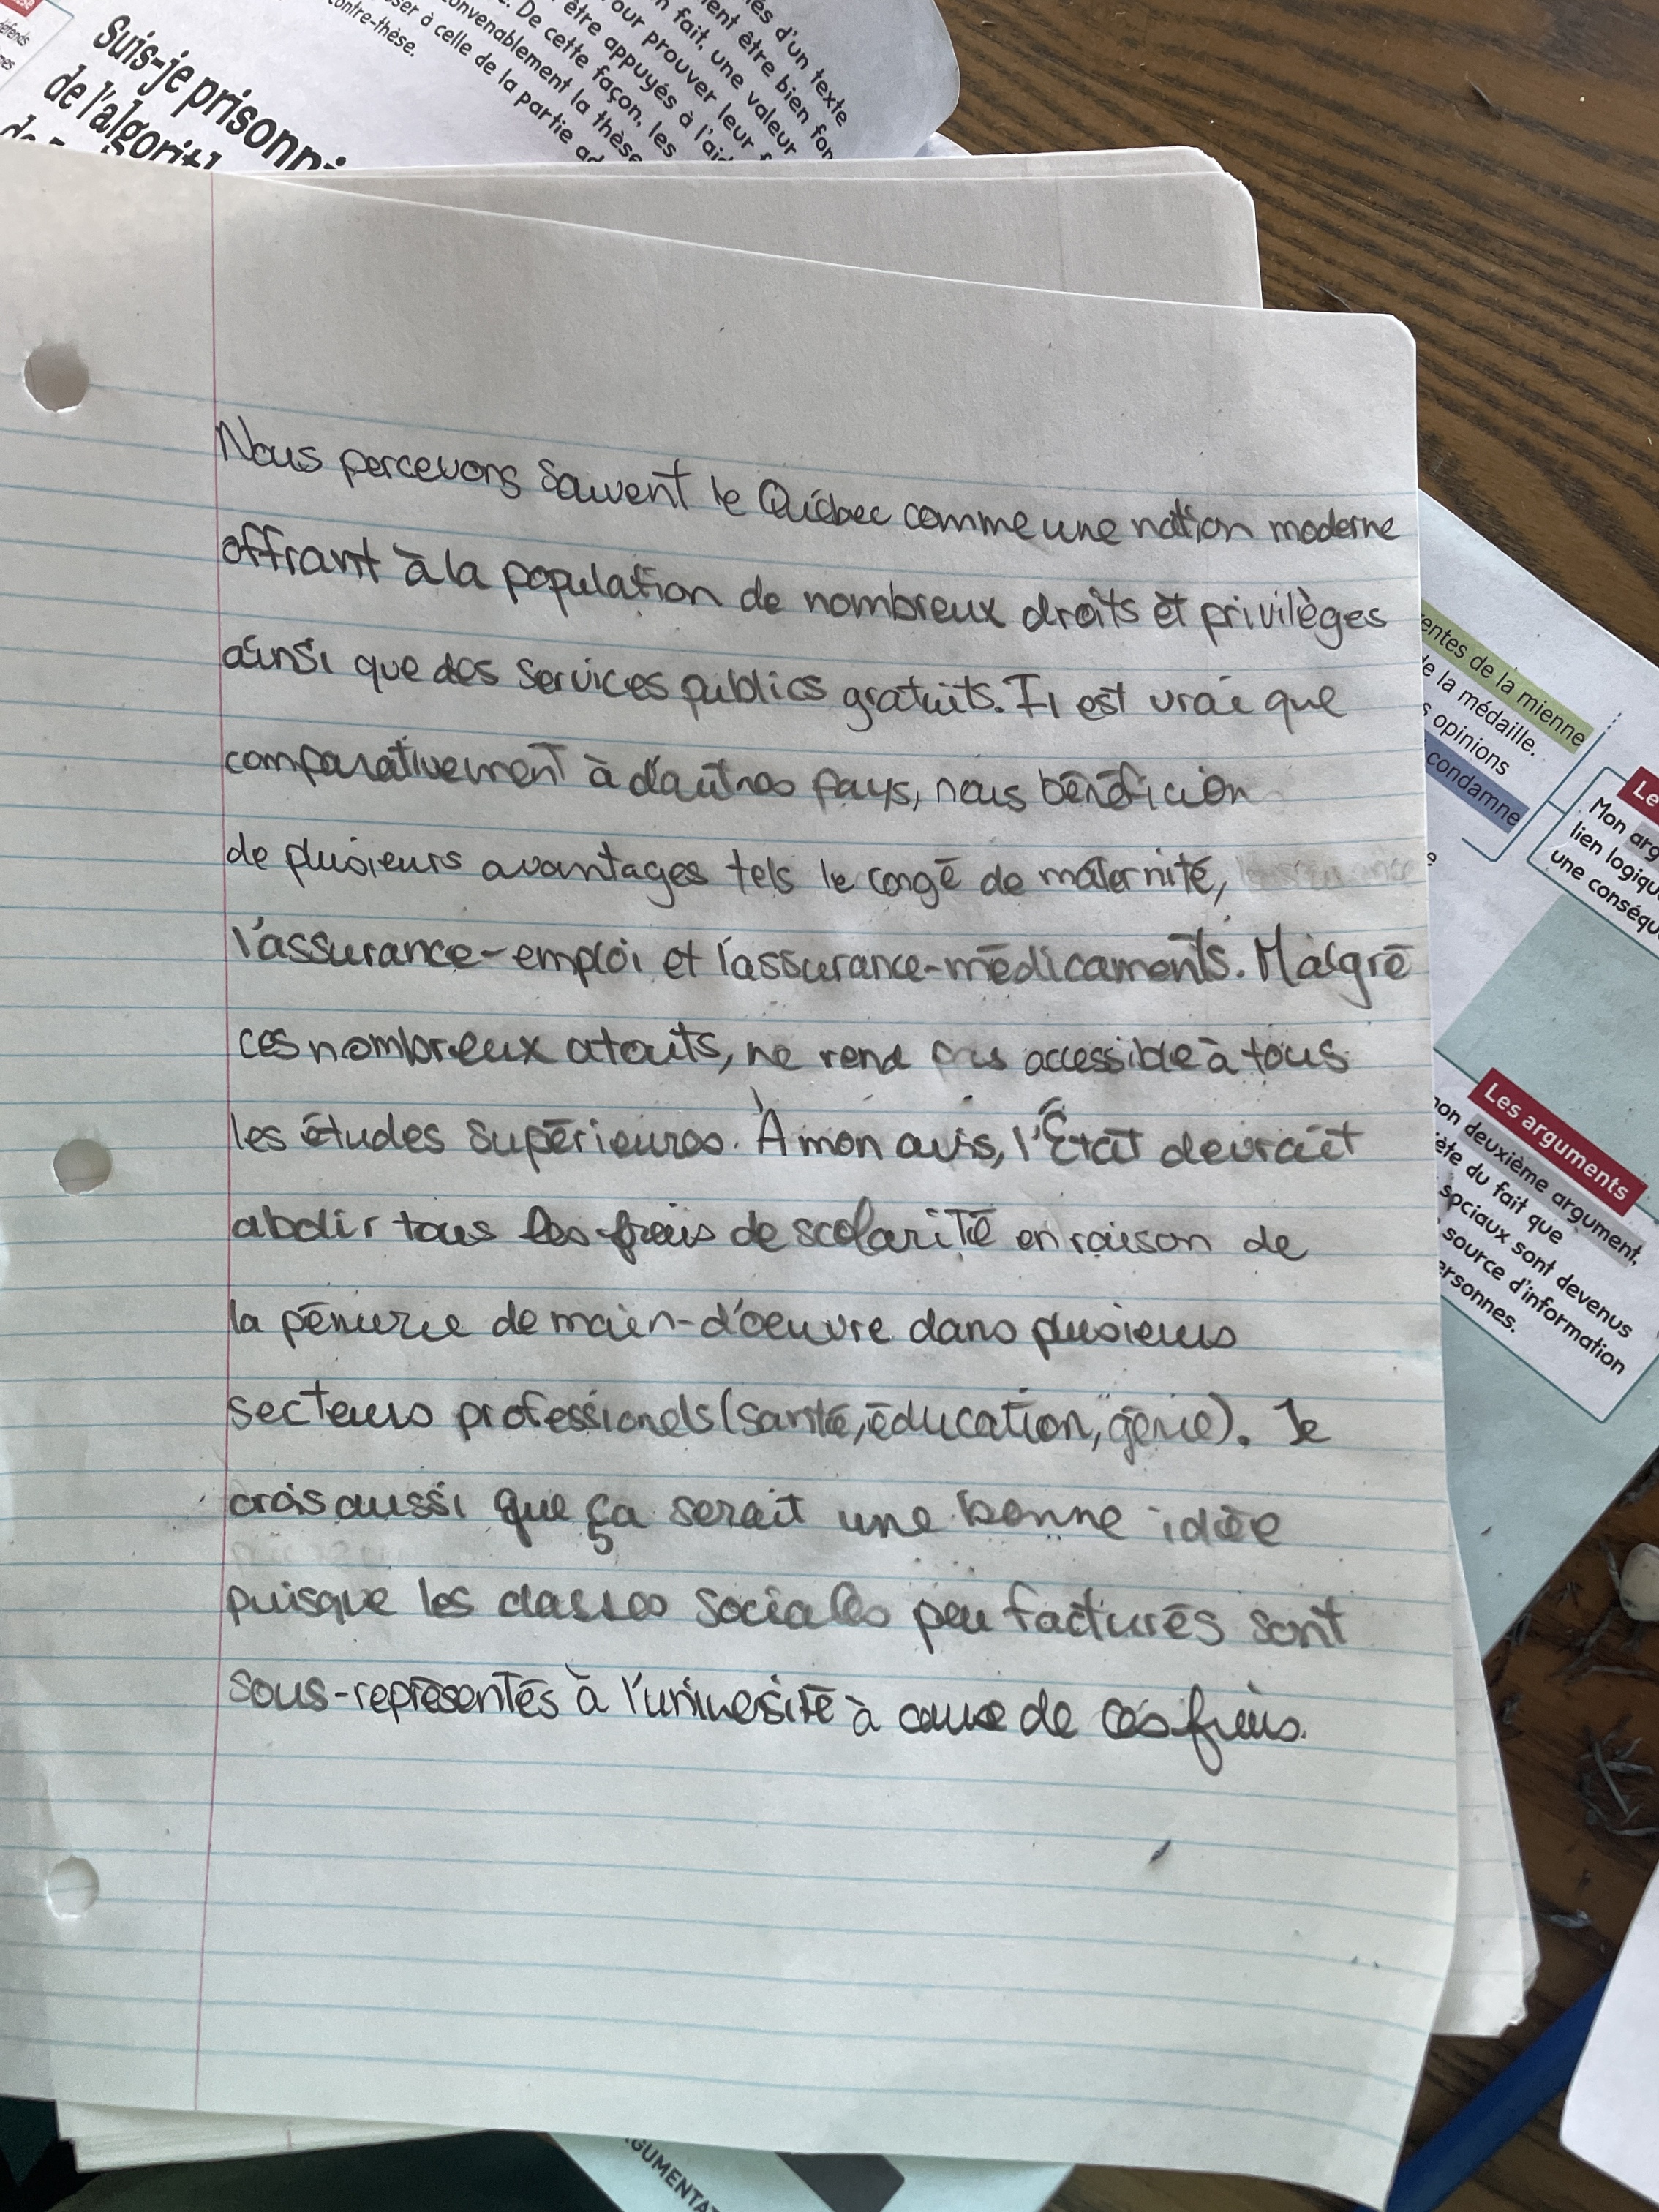 Suis-je prisonni
de l'algorit
és d'un texte
ent être bien fon
n fait, une valeur
our prouver leur
être appuyés à l'ai
. De cette façon, les
onvenablement la thèse
ser à celle de la partie ad
contre-thèse.
Nous percevons souvent le Québec comme une nation moderne
offrant à la population de nombreux droits et privilèges
ainsi que des services publics gratuits. Il est vrai que
comparativement à d'autres pays, nous bénéficion
de plusieurs avantages tels le congé de maternité,
l'assurance-emploi et l'assurance-médicaments. Malgré
ces nombreux atouts, ne rend pas accessible à tous
les études supérieures. À mon avis, l'État devrait
abolir tous les frais de scolarité en raison de
la pénurie de main-d'oeuvre dans plusieurs
secteurs professionels (santé, éducation, génie). Je
crois aussi que ça serait une bonne idée
puisque les classes sociales peu facturés sont
sous-représentés à l'université à cause de ces frais.
entes de la mienne
de la médaille.
s opinions
condamne
Le
Mon arg
lien logiqu
une conséqu
Les arguments
mon deuxième argument,
ète du fait que
sociaux sont devenus
source d'information
ersonnes.
GUMENTAT